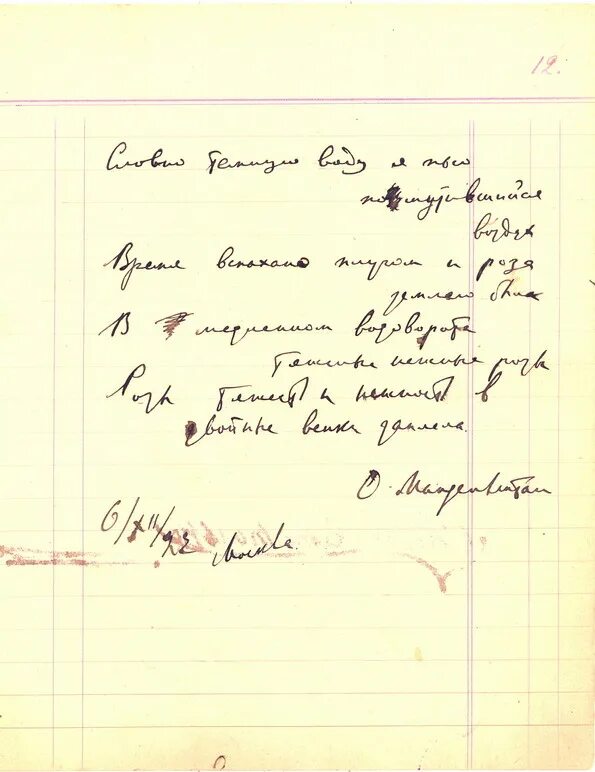 12.
Словно темную воду я пью
помутившийся
воздух
Время вспахано плугом и роза
землею была
В медленном водовороте
тяжелые нежные розы
Розы тяжесть и нежность в
двойные венки заплела.
О. Мандельштам
6/XII/23 Москва.